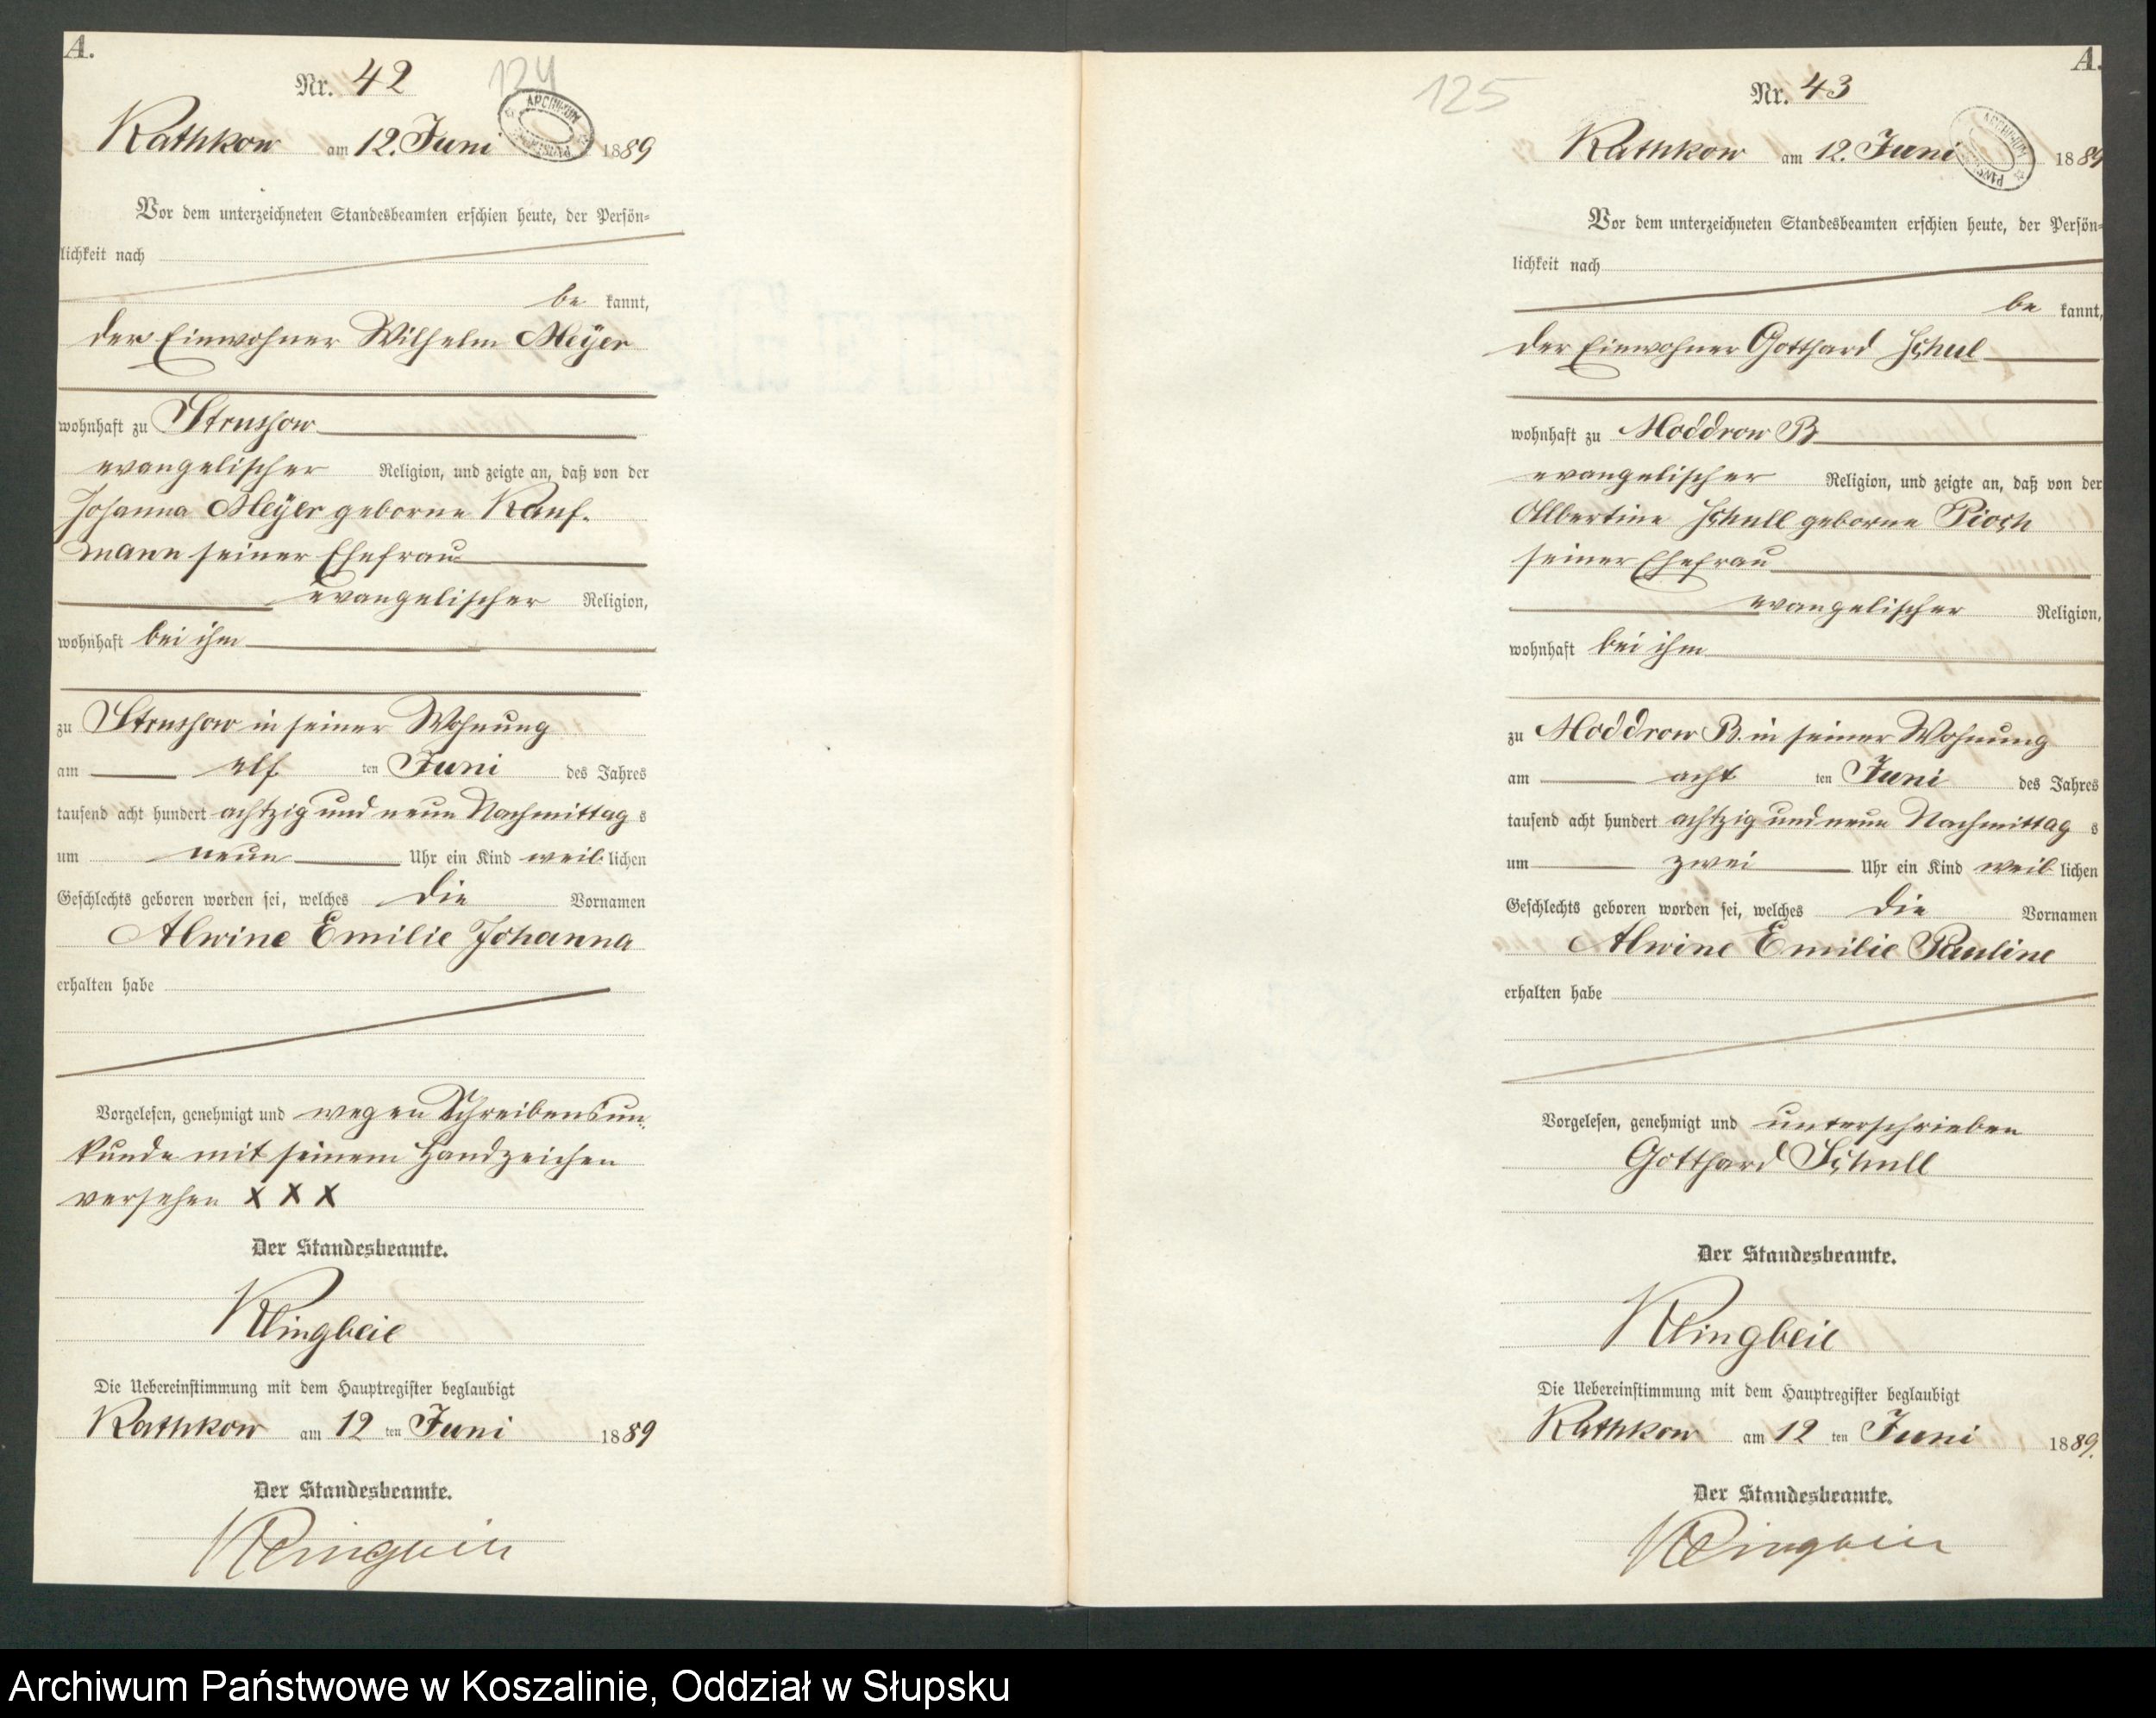 A.
Nr. 42
124
Rathkow am 12. Juni 1889
Vor dem unterzeichneten Standesbeamten erschien heute, der Persön=
lichkeit nach
be kannt,
der Einwohner Wilhelm Meÿer
wohnhaft zu Strussow
evangelischer Religion, und zeigte an, daß von der
Johanna Meÿer geborne Kauf-
mann seiner Ehefrau
evangelischer Religion,
wohnhaft bei ihm
zu Strussow in seiner Wohnung
am elf ten Juni des Jahres
tausend acht hundert achtzig und neun Nachmittag s
um neun Uhr ein Kind weib lichen
Geschlechts geboren worden sei, welches die Vornamen
Alwine Emilie Johanna
erhalten habe
Vorgelesen, genehmigt und wegen Schreibensun-
kunde mit seinem Handzeichen
versehen X X X
Der Standesbeamte.
Klingbeil
Die Uebereinstimmung mit dem Hauptregister beglaubigt
Rathkow am 12 ten Juni 1889
Der Standesbeamte.
Klingbeil
A.
Nr. 43
125
Rathkow am 12. Juni 1889
Vor dem unterzeichneten Standesbeamten erschien heute, der Persön=
lichkeit nach
be kannt,
der Einwohner Gotthard
wohnhaft zu Moddrow B
evangelischer Religion, und zeigte an, daß von der
Albertine Schull geborne Pioch
seiner Ehefrau
evangelischer Religion,
wohnhaft bei ihm
zu Moddrow B. in seiner Wohnung
am acht ten Juni des Jahres
tausend acht hundert achtzig und neun Nachmittag s
um zwei Uhr ein Kind weib lichen
Geschlechts geboren worden sei, welches die Vornamen
Alwine Emilie Pauline
erhalten habe
Vorgelesen, genehmigt und unterschrieben
Gotthard Schull
Der Standesbeamte.
Klingbeil
Die Uebereinstimmung mit dem Hauptregister beglaubigt
Rathkow am 12 ten Juni 1889.
Der Standesbeamte.
Klingbeil
Archiwum Państwowe w Koszalinie, Oddział w Słupsku